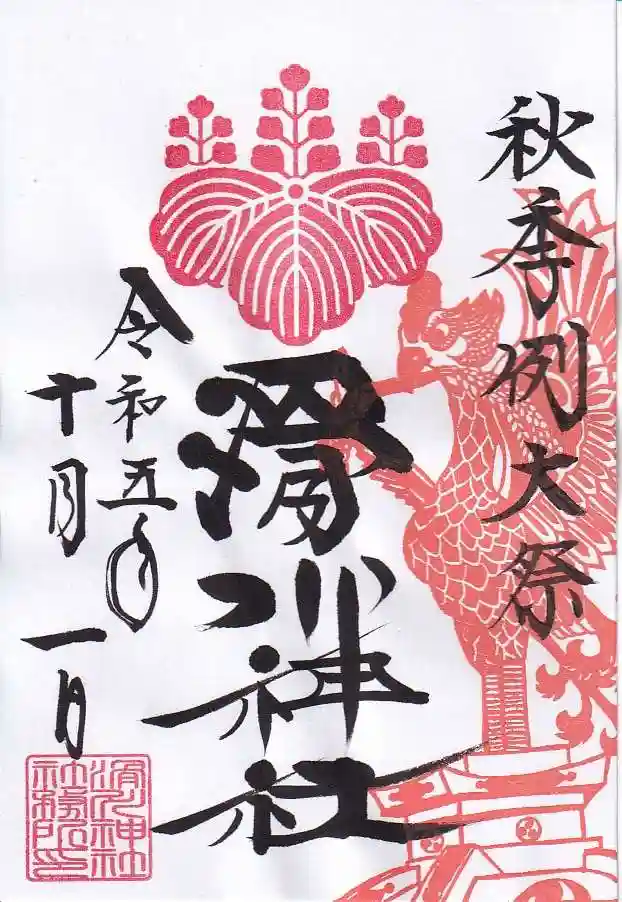 秋季例大祭
滑川神社
令和五年
十月一日
滑川神社
社務所印